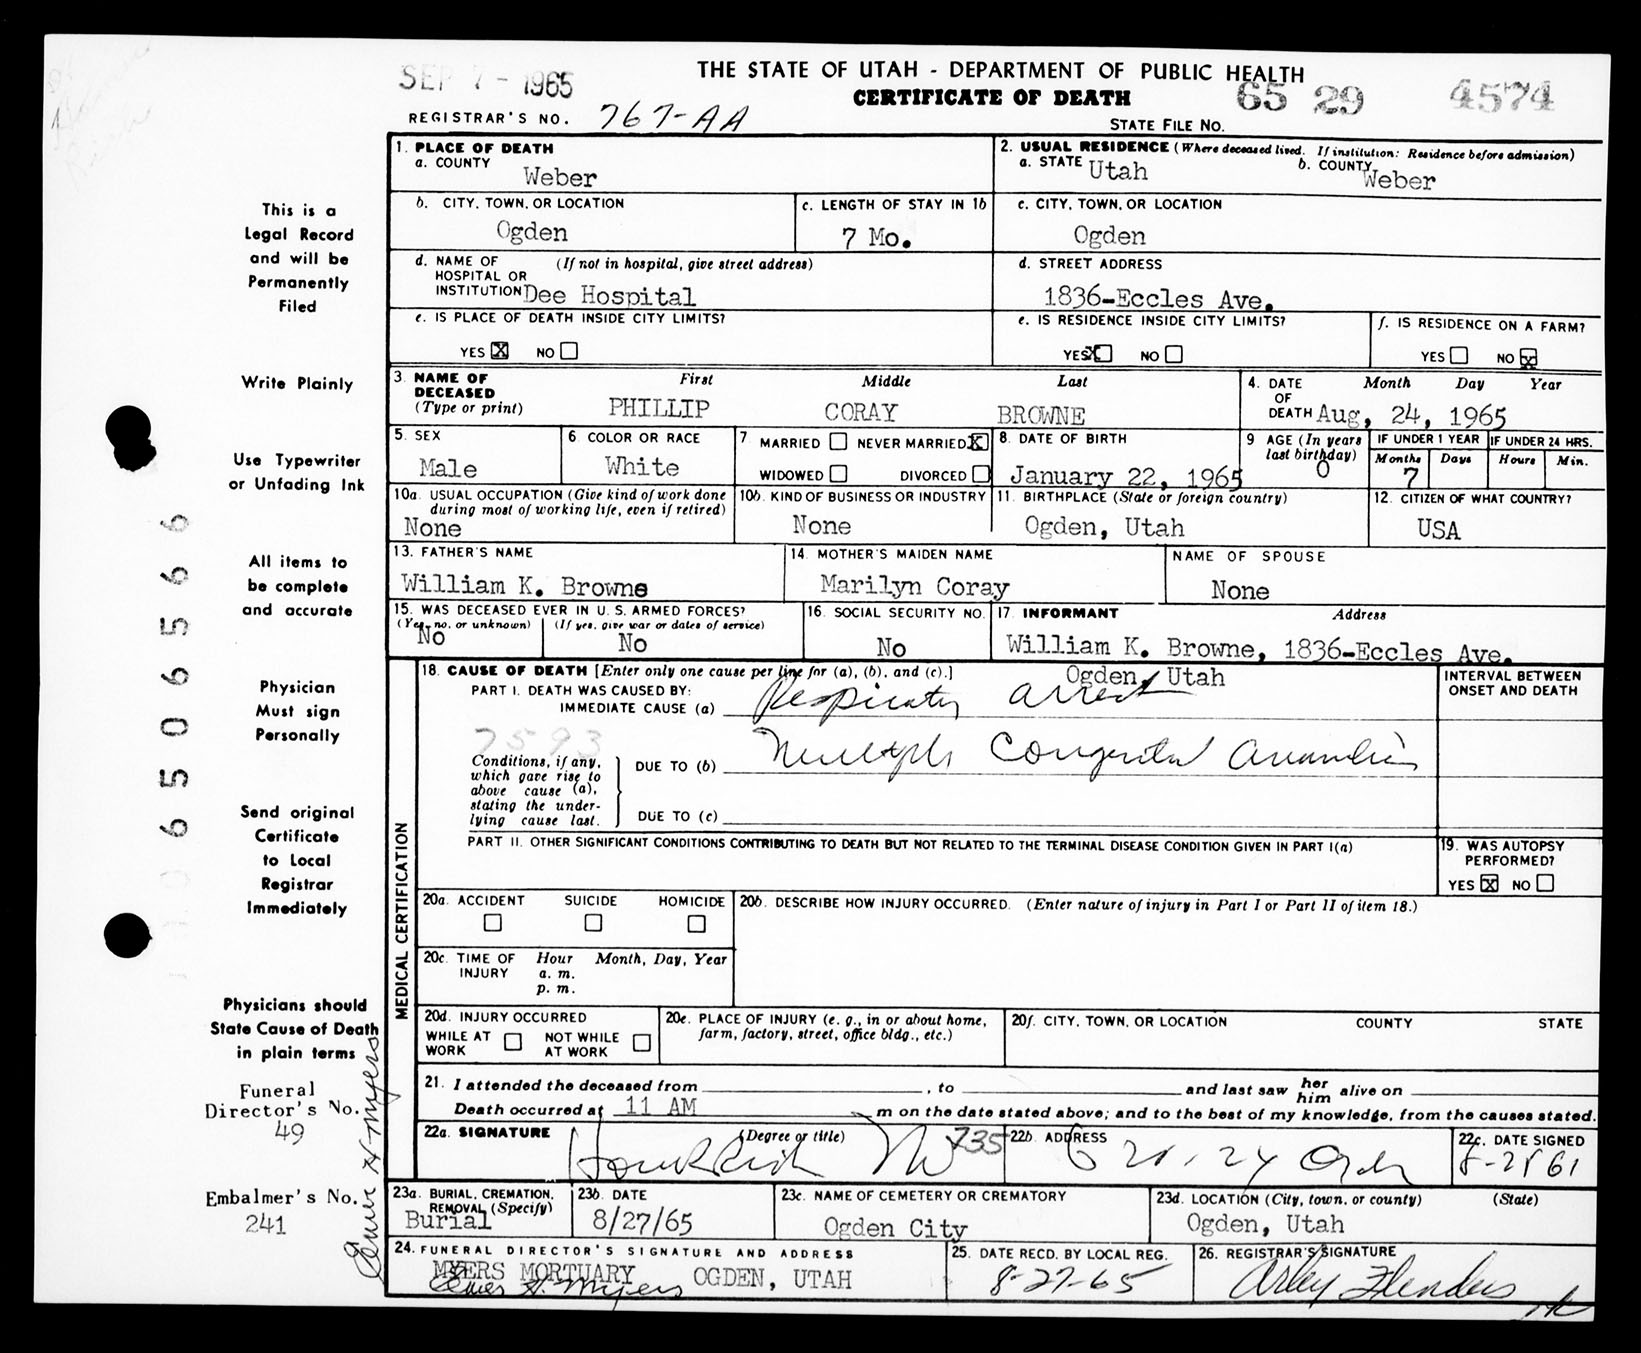 SEP 7 - 1965
THE STATE OF UTAH - DEPARTMENT OF PUBLIC HEALTH
CERTIFICATE OF DEATH
65 29 4574
REGISTRAR'S NO. 767-AA
STATE FILE NO.
This is a
Legal Record
and will be
Permanently
Filed
Write Plainly
Use Typewriter
or Unfading Ink
All items to
be complete
and accurate
Physician
Must sign
Personally
Send original
Certificate
to Local
Registrar
Immediately
Physicians should
State Cause of Death
in plain terms
Funeral
Director's No.
49
Embalmer's No.
241
Elmer H Myers
650 6 5 5 6 6
1. PLACE OF DEATH
a. COUNTY
Weber
2. USUAL RESIDENCE (Where deceased lived. If institution: Residence before admission)
a. STATE Utah b. COUNTY Weber
b. CITY, TOWN, OR LOCATION
Ogden
c. LENGTH OF STAY IN 1b
7 Mo.
c. CITY, TOWN, OR LOCATION
Ogden
d. NAME OF (If not in hospital, give street address)
HOSPITAL OR
INSTITUTION Dee Hospital
d. STREET ADDRESS
1836-Eccles Ave.
e. IS PLACE OF DEATH INSIDE CITY LIMITS?
YES X NO
e. IS RESIDENCE INSIDE CITY LIMITS?
YES X NO
f. IS RESIDENCE ON A FARM?
YES NO X
3. NAME OF DECEASED
(Type or print)
First Middle Last
PHILLIP CORAY BROWNE
4. DATE OF DEATH
Month Day Year
Aug, 24, 1965
5. SEX
Male
6. COLOR OR RACE
White
7 MARRIED NEVER MARRIED X
WIDOWED DIVORCED
8. DATE OF BIRTH
January 22, 1965
9 AGE (In years last birthday)
0
IF UNDER 1 YEAR IF UNDER 24 HRS.
Months Days Hours Min.
7
10a. USUAL OCCUPATION (Give kind of work done
during most of working life, even if retired)
None
10b. KIND OF BUSINESS OR INDUSTRY
None
11. BIRTHPLACE (State or foreign country)
Ogden, Utah
12. CITIZEN OF WHAT COUNTRY?
USA
13. FATHER'S NAME
William K. Browne
14. MOTHER'S MAIDEN NAME
Marilyn Coray
NAME OF SPOUSE
None
15. WAS DECEASED EVER IN U.S. ARMED FORCES?
(Yes, no, or unknown) (If yes, give war or dates of service)
No No
16. SOCIAL SECURITY NO.
No
17. INFORMANT Address
William K. Browne, 1836-Eccles Ave.
Ogden, Utah
MEDICAL CERTIFICATION
18. CAUSE OF DEATH [Enter only one cause per line for (a), (b), and (c).]
INTERVAL BETWEEN
ONSET AND DEATH
PART I. DEATH WAS CAUSED BY:
IMMEDIATE CAUSE (a) Respiratory arrest
7593
Conditions, if any,
which gave rise to
above cause (a),
stating the under-
lying cause last.
DUE TO (b) Multiple Congenital Anomalies
DUE TO (c)
PART II. OTHER SIGNIFICANT CONDITIONS CONTRIBUTING TO DEATH BUT NOT RELATED TO THE TERMINAL DISEASE CONDITION GIVEN IN PART I(a)
19. WAS AUTOPSY
PERFORMED?
YES X NO
20a. ACCIDENT SUICIDE HOMICIDE
20b. DESCRIBE HOW INJURY OCCURRED. (Enter nature of injury in Part I or Part II of item 18.)
20c. TIME OF INJURY
Hour Month, Day, Year
a. m.
p. m.
20d. INJURY OCCURRED
WHILE AT WORK NOT WHILE AT WORK
20e. PLACE OF INJURY (e. g., in or about home,
farm, factory, street, office bldg., etc.)
20f. CITY, TOWN, OR LOCATION COUNTY STATE
21. I attended the deceased from , to and last saw her him alive on
Death occurred at 11 AM m on the date stated above; and to the best of my knowledge, from the causes stated.
22a. SIGNATURE (Degree or title)
735
22b. ADDRESS
22c. DATE SIGNED
23a. BURIAL, CREMATION,
REMOVAL (Specify)
Burial
23b. DATE
8/27/65
23c. NAME OF CEMETERY OR CREMATORY
Ogden City
23d. LOCATION (City, town, or county) (State)
Ogden, Utah
24. FUNERAL DIRECTOR'S SIGNATURE AND ADDRESS
MYERS MORTUARY OGDEN, UTAH
Elmer H. Myers
25. DATE RECD. BY LOCAL REG.
8-27-65
26. REGISTRAR'S SIGNATURE